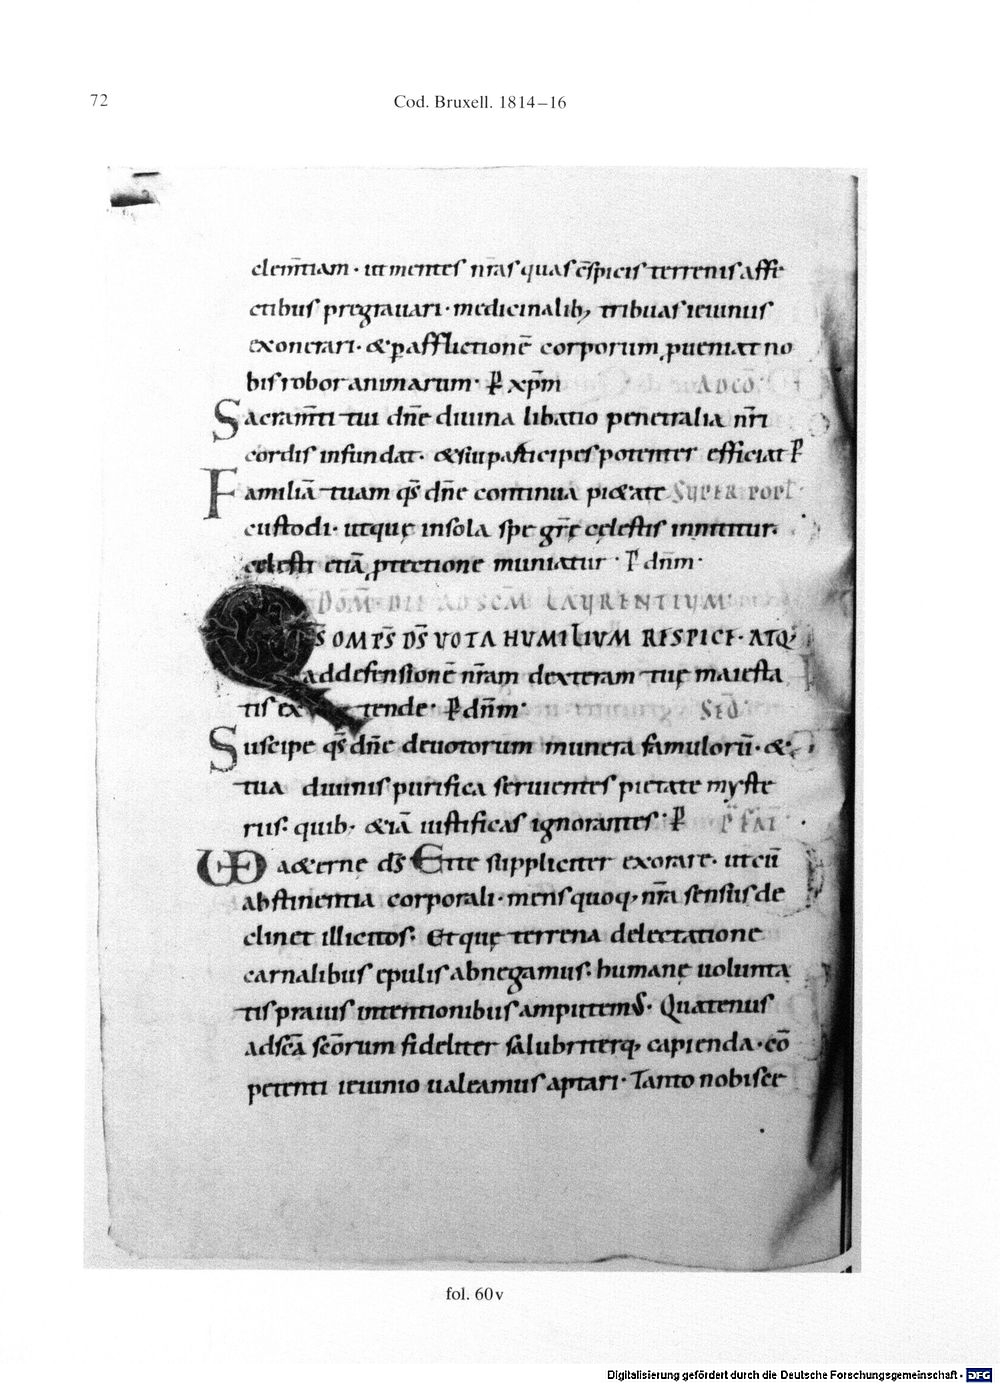 72
Cod. Bruxell. 1814–16
clem̄tiam · ut mentes nr̄as quas c̄spicis terrenis affe
ctibus pregrauari · medicinalib; tribuas ieiuniis
exonerari · & ꝑ afflictionē corporum ꝓueniat no
bis robor animarum · P̄ xp̄m AD CŌ
Sacram̄ti tui dn̄e diuina libatio penetralia nr̄i
cordis infundat · & sui participes potenter efficiat P̄
Familiā tuam qs̄ dn̄e continua pi&ate SUPER POPL̄
custodi · utquę in sola spe gr̄ę cęlestis innititur ·
celesti etiā ꝓtectione muniatur · P̄ dn̄m ·
DOM̄ DIE AD SCM̄ LAURENTIUM
QS̄ OMPS̄ DS̄ VOTA HUMILIUM RESPICE · ATQ;
ad defensionē nr̄am dexteram tuę maiesta
tis extende · P̄ dn̄m · SED̄
Suscipe qs̄ dn̄e deuotorum munera famulorū · &
tua diuinis purifica seruientes pietate myste
riis · quib; &iā iustificas ignorantes · P̄ P̄FAT̄
VD aeternę ds̄ Et te suppliciter exorare · ut cū
abstinentia corporali · mens quoq; nr̄a sensus de
clinet illicitos · Et quę terrena delectatione
carnalibus epulis abnegamus · humanę uolunta
tis prauis intentionibus amputemus · Quatenus
ad sc̄ā sc̄ōrum fideliter salubriterq; capienda · cō
petenti ieiunio ualeamus aptari · Tanto nobis ce
fol. 60v
Digitalisierung gefördert durch die Deutsche Forschungsgemeinschaft - DFG